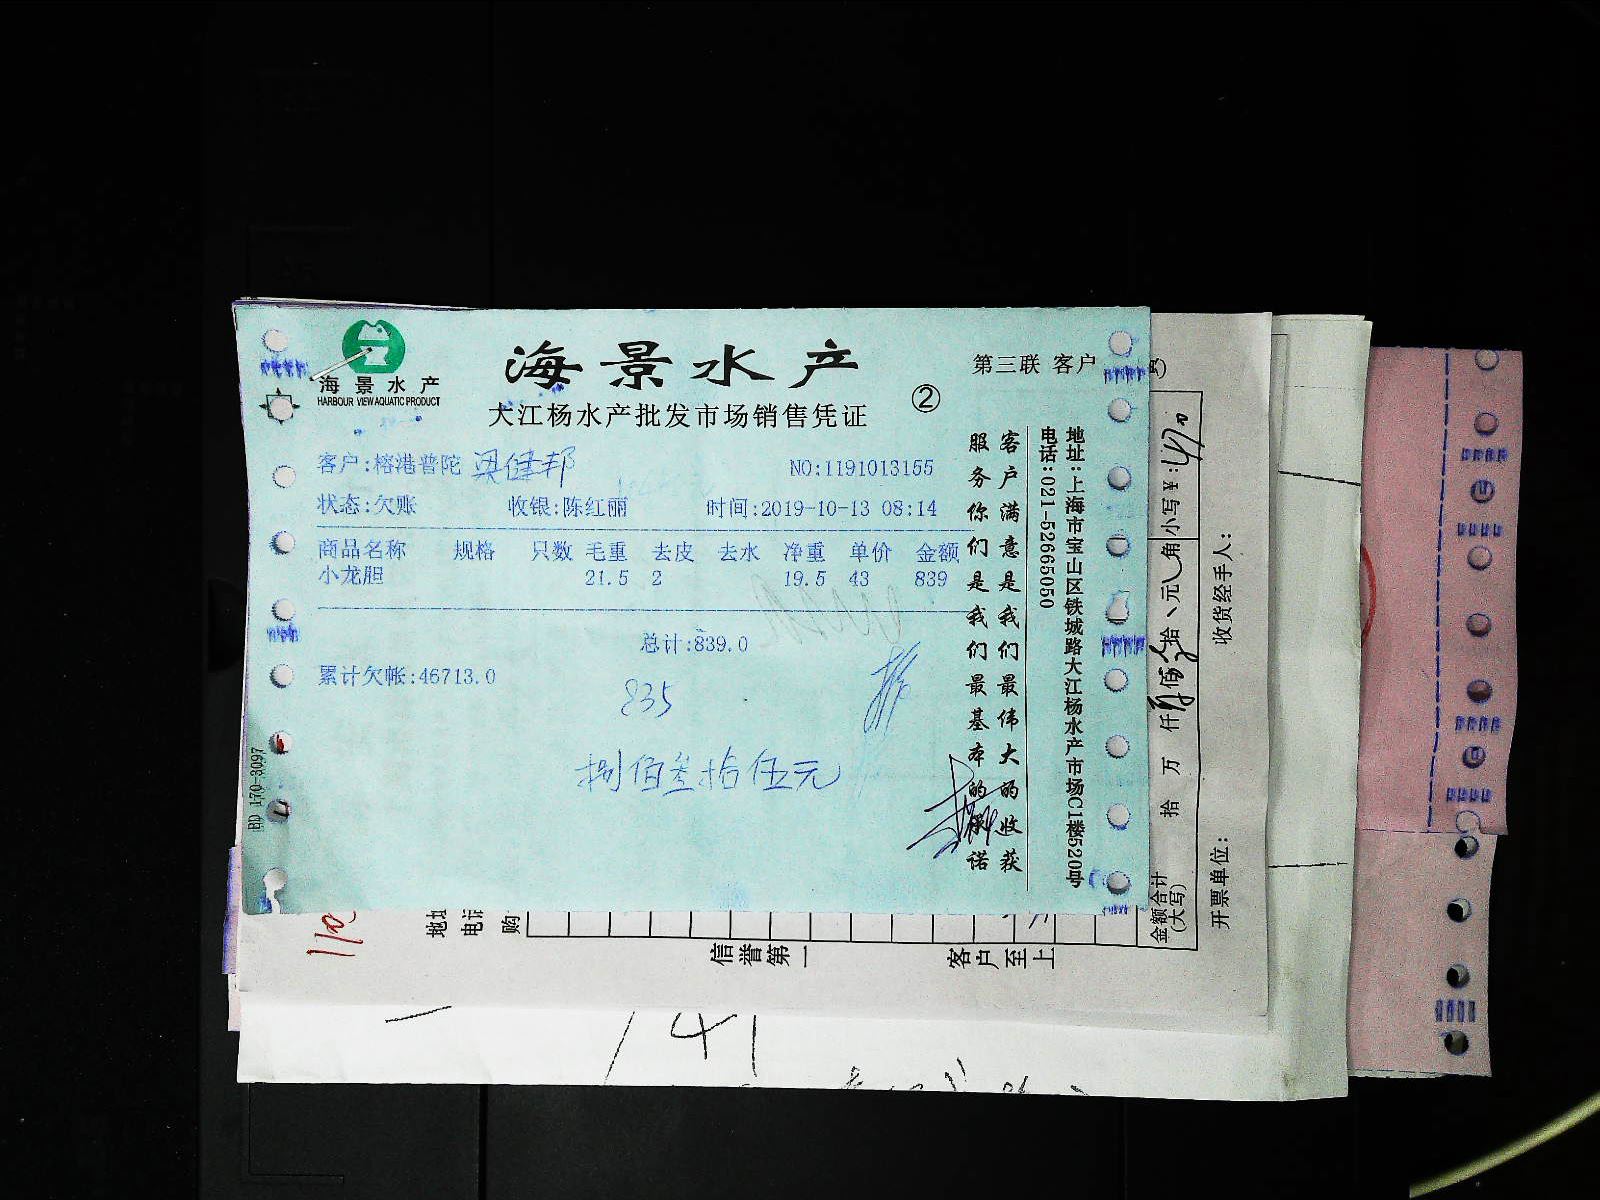 海景水产
HARBOUR VIEW AQUATIC PRODUCT
海景水产
大江杨水产批发市场销售凭证
②
第三联 客户
客户:榕港普陀 梁健邦
NO:1191013155
状态:欠账 收银:陈红丽 时间:2019-10-13 08:14
商品名称 规格 只数 毛重 去皮 去水 净重 单价 金额
小龙胆 21.5 2 19.5 43 839
总计:839.0
累计欠帐:46713.0
835
捌佰叁拾伍元
客户满意是我们最伟大的收获
服务你们是我们最基本的承诺
地址:上海市宝山区铁城路大江杨水产市场C1楼520号
电话:021-52665050
BD 170-3097
金额合计
(大写)
拾 万 仟 佰 拾 元 角 小写¥:470
开票单位:
收货经手人:
地址
电话
购
信誉第一
客户至上
141